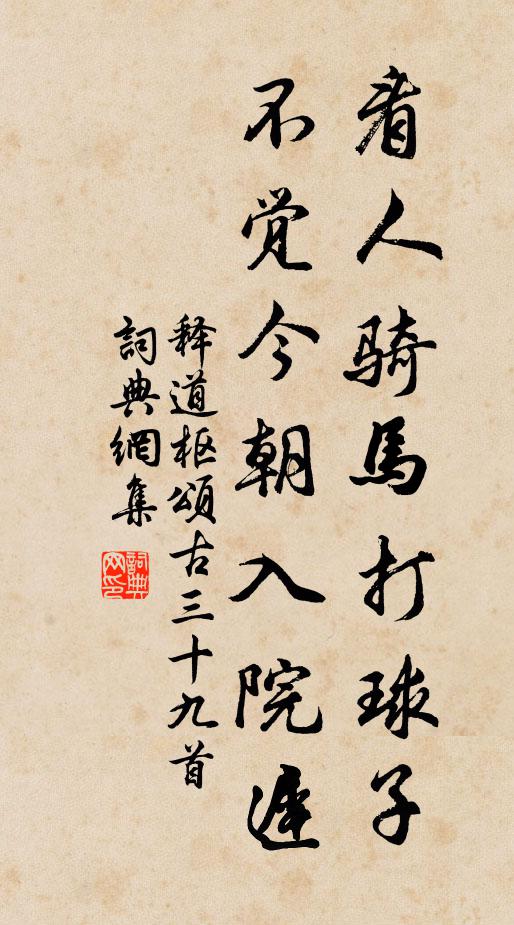 看人骑馬打球子
不觉今朝入院遲
释道枢頌古三十九首
詞典網集
詞典网印